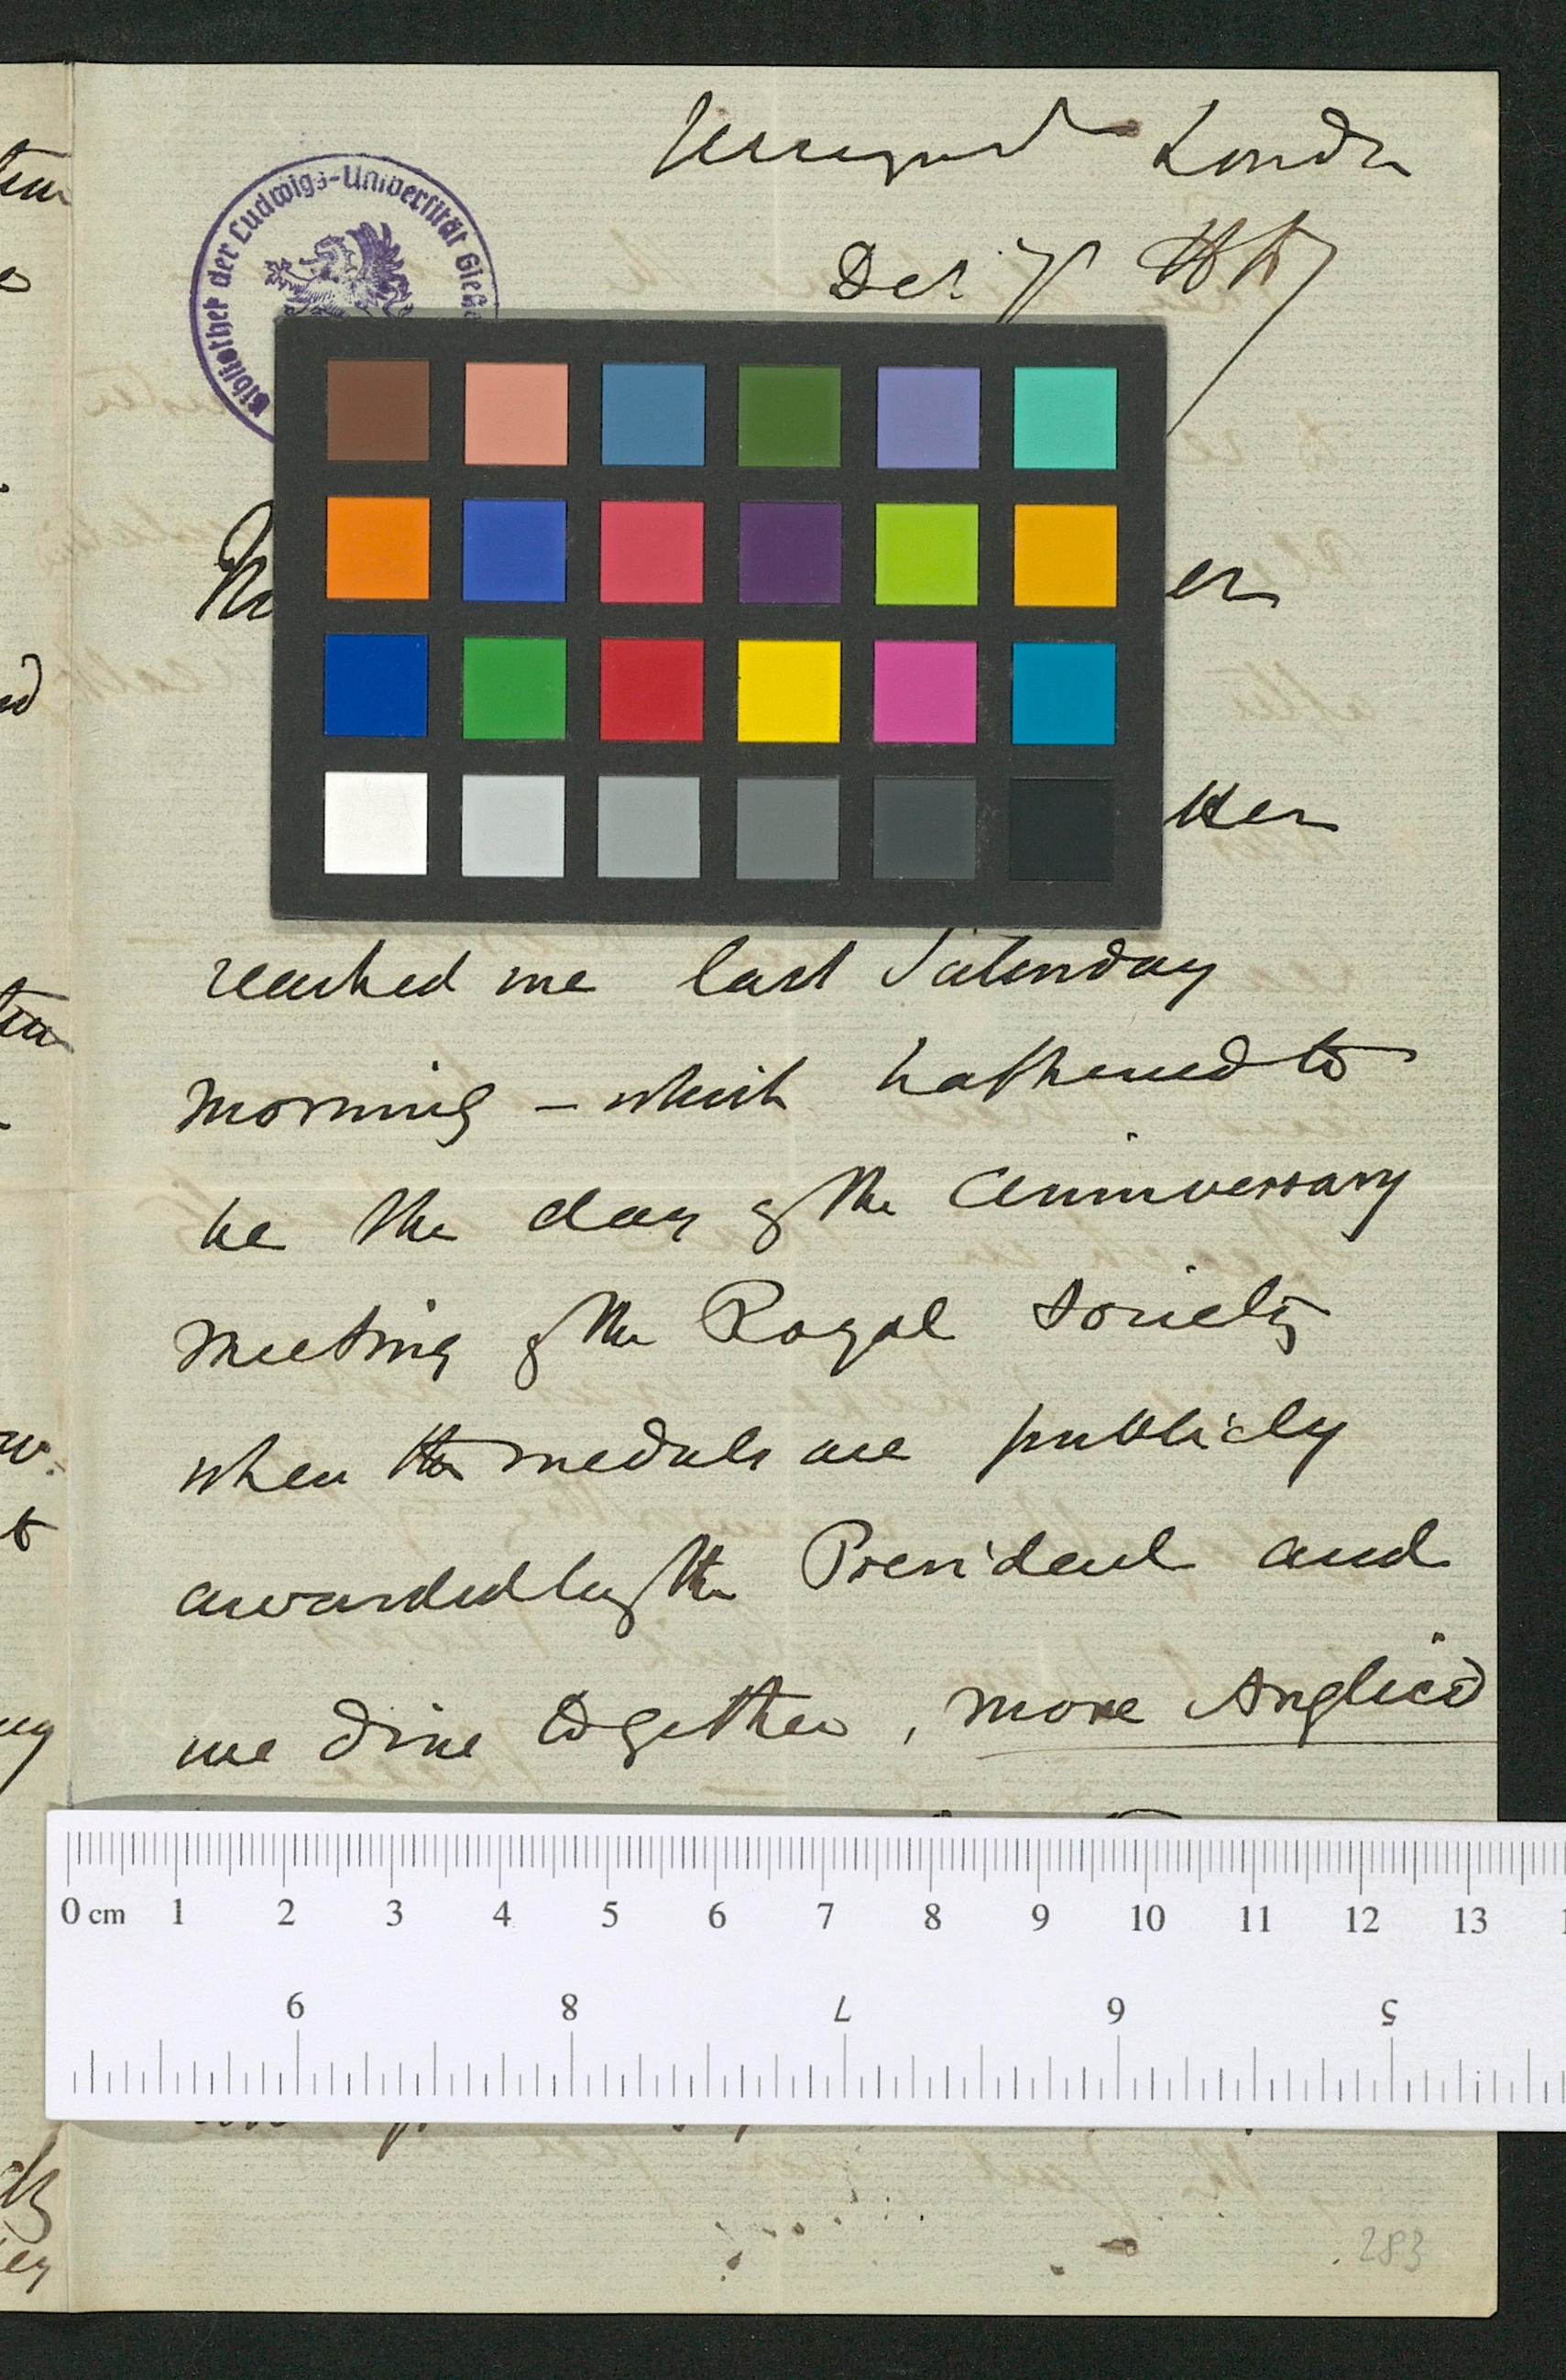 Jermyn St London
Dec.
Bibliothek der Ludwigs-Universität Gieße
er
tter
reached me last Saturday
morning – which happened to
be the day of the Anniversary
meeting of the Royal Society
when the medals are publicly
awarded by the President and
we dine together, more Anglico
0 cm 1 2 3 4 5 6 7 8 9 10 11 12 13
9 8 7 6 5
283